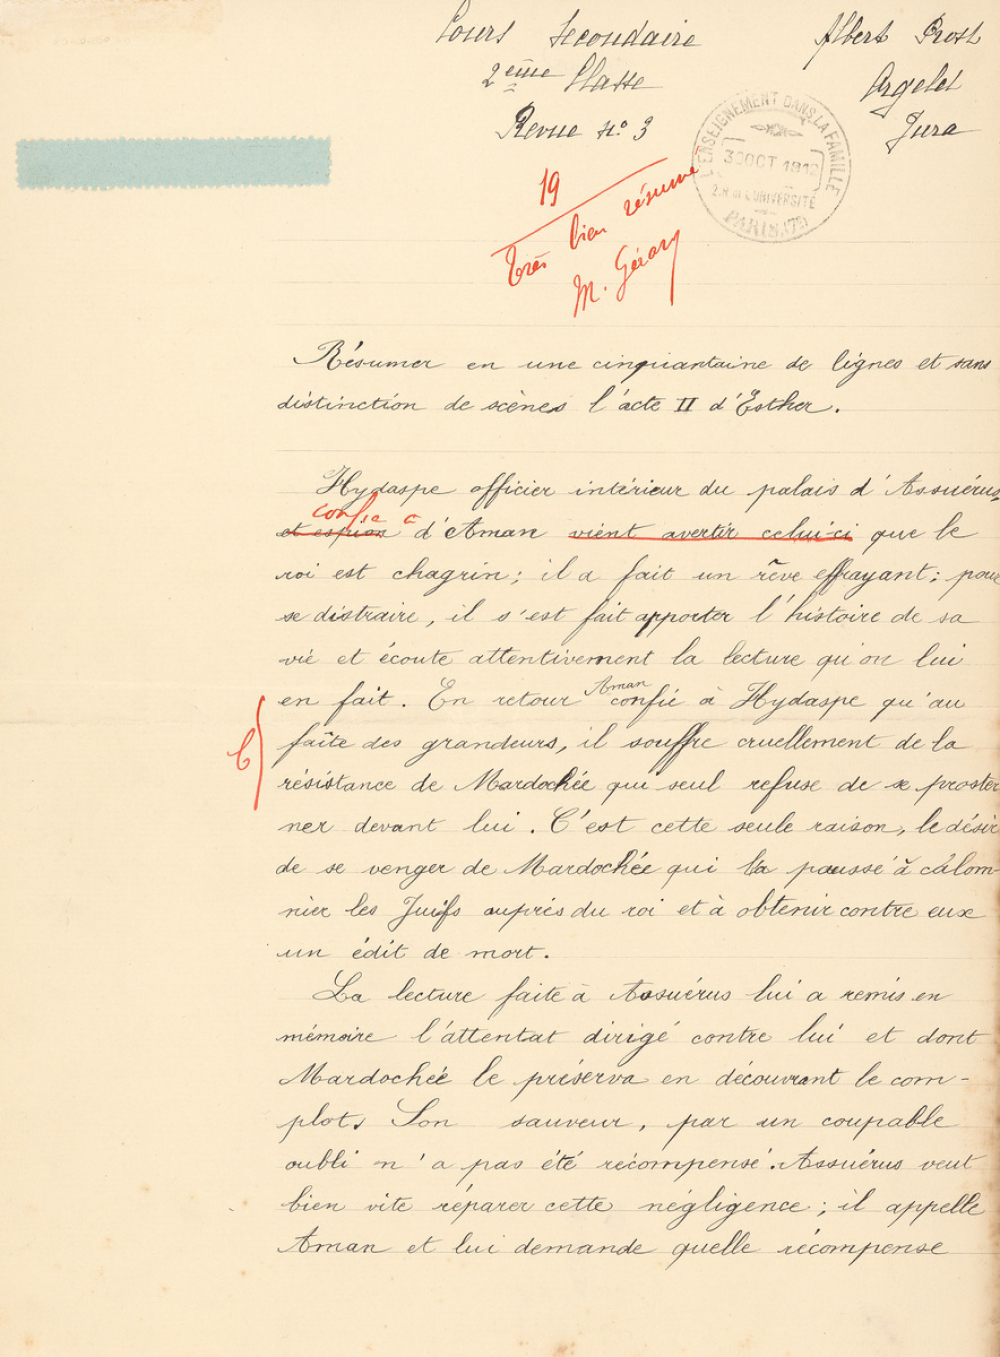 Cours Secondaire
Albert Prost
2ème Classe
Argelet
Revue no 3
Jura
L'ENSEIGNEMENT DANS LA FAMILLE
30 OCT 1912
2.R de L'UNIVERSITÉ
PARIS (7e)
19
Très bien résumé
M. Gérary
Résumer en une cinquantaine de lignes et sans
distinction de scènes l'acte II d'Esther.
Hydaspe officier intérieur du palais d'Assuérus,
confie à
et espion d'Aman vient avertir celui-ci que le
roi est chagrin; il a fait un rêve effrayant; pour
se distraire, il s'est fait apporter l'histoire de sa
vie et écoute attentivement la lecture qu'on lui
en fait. En retour Aman confie à Hydaspe qu'au
b faîte des grandeurs, il souffre cruellement de la
résistance de Mardochée qui seul refuse de se proster
ner devant lui. C'est cette seule raison, le désir
de se venger de Mardochée qui l'a poussé à calom-
nier les Juifs auprès du roi et à obtenir contre eux
un édit de mort.
La lecture faite à Assuérus lui a remis en
mémoire l'attentat dirigé contre lui et dont
Mardochée le préserva en découvrant le com-
plot. Son sauveur, par un coupable
oubli n'a pas été récompensé. Assuérus veut
bien vite réparer cette négligence; il appelle
Aman et lui demande quelle récompense